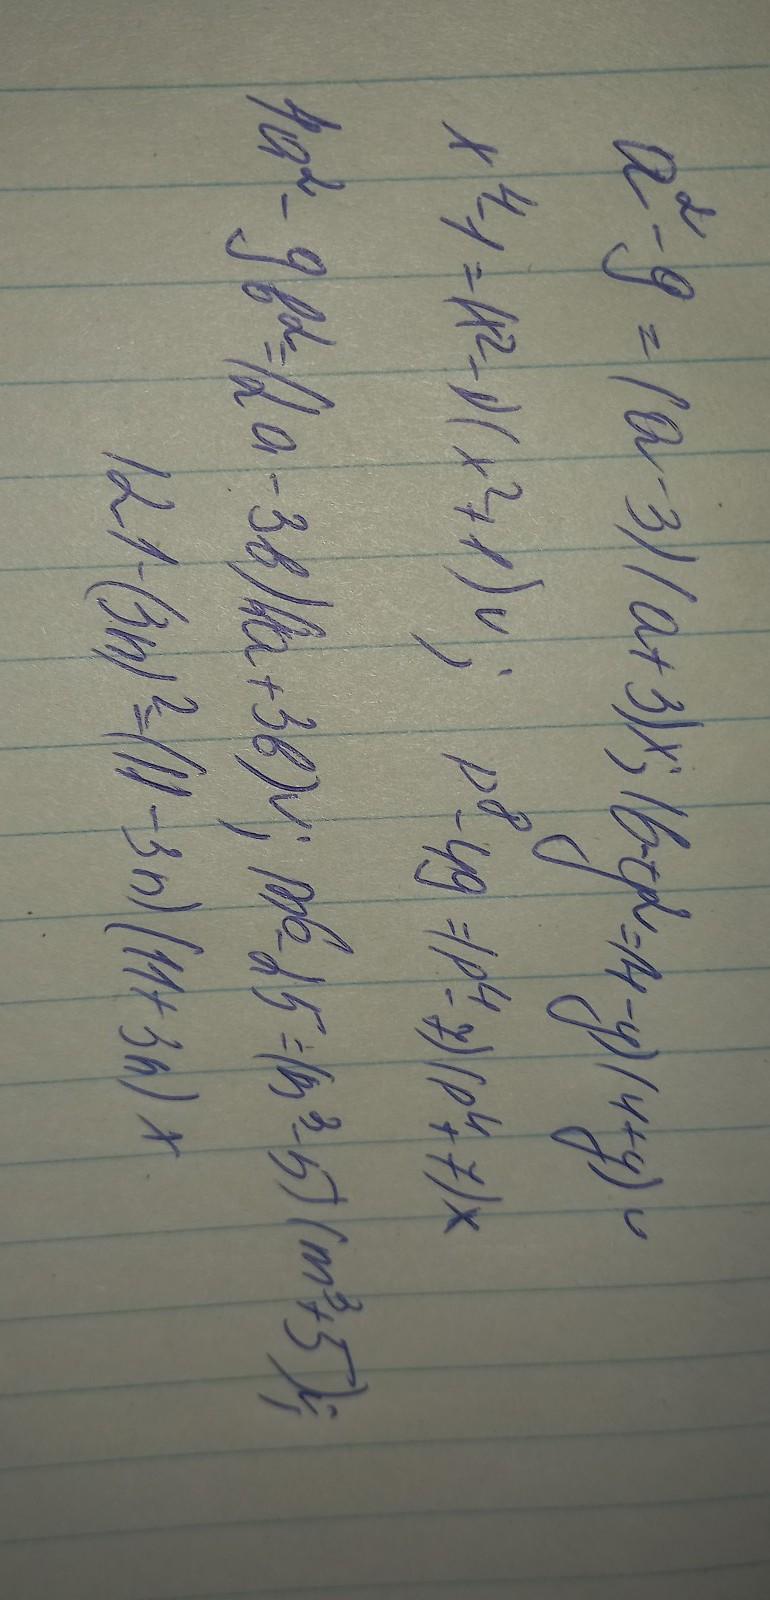 a² - 9 = (a - 3)(a + 3)x; 16 - y² = (4 - y)(4 + y)v
x⁴ - 1 = (x² - 1)(x² + 1)v; p⁸ - 49 = (p⁴ - 7)(p⁴ + 7)x
4a² - 9b² = (2a - 3b)(2a + 3b)v; m⁶ - 25 = (m³ - 5)(m³ + 5)v;
121 - (3n)² = (11 - 3n)(11 + 3n)x